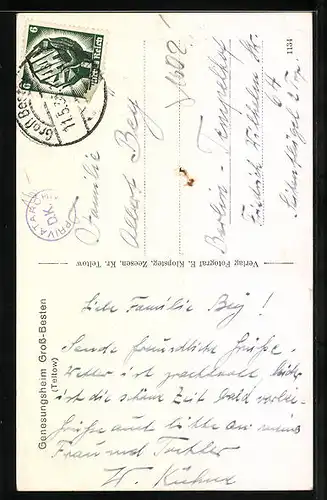 Familie
Albert Bey
Berlin - Tempelhof
Friedrich Wilhelm Str.
64
1134
6
Deutsches Reich
6
Groß Bes
11.5.3
PRIVATARCHIV
DK.
Verlag Fotograf E. Klopsteg, Zeesen, Kr. Teltow
Genesungsheim Groß-Besten
(Teltow)
Liebe Familie Bey !
Sende freundliche Grüße.
Wetter ist prachtvoll leider
ist die schöne Zeit bald vorbei
Grüße auch bitte an meine
Frau und Tochter
W. Kühne